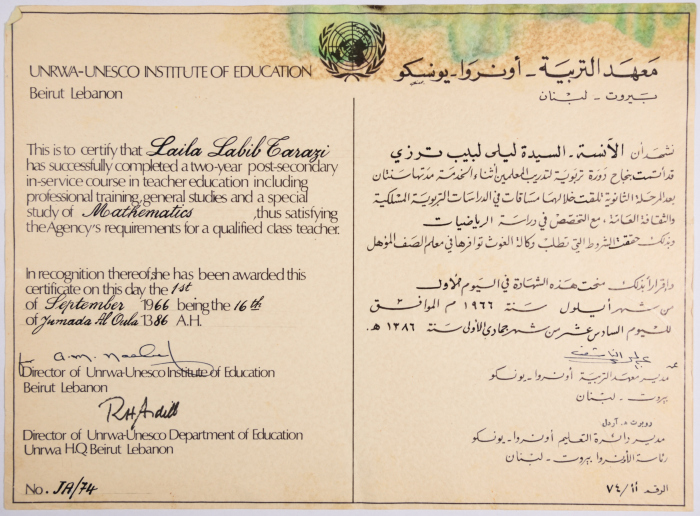 UNRWA-UNESCO INSTITUTE OF EDUCATION
Beirut Lebanon
This is to certify that Laila Labib Tarazi
has successfully completed a two-year post-secondary
in-service course in teacher education including
professional training, general studies and a special
study of Mathematics ,thus satisfying
the Agency's requirements for a qualified class teacher.
In recognition thereof,she has been awarded this
certificate on this day the 1st
of September 1966 being the 16th
of Jumada Al Oula 1386 A.H.
for
Director of Unrwa-Unesco Institute of Education
Beirut Lebanon
Director of Unrwa-Unesco Department of Education
Unrwa H.Q. Beirut Lebanon
No. JA/74
معهد التربية - أونروا - يونسكو
بيروت - لبنان
نشهد أن الآنسة - السيدة ليلى لبيب ترزي
قد أتمت بنجاح دورة تربوية لتدريب المعلمين أثناء الخدمة مدتها سنتان
بعد المرحلة الثانوية تلقت خلالها مساقات في الدراسات التربوية المسلكية
والثقافة العامة ، مع التخصص في دراسة الرياضيات
وبذلك حققت الشروط التي تتطلب وكالة الغوث توافرها في معلم الصف المؤهل
واقرارا بذلك منحت هذه الشهادة في اليوم الأول
من شهر أيلول سنة ١٩٦٦ م الموافق
لليوم السادس عشر من شهر جمادى الأولى سنة ١٣٨٦ هـ.
مدير معهد التربية أونروا - يونسكو
بيروت - لبنان
روبرت ه. أردل
مدير دائرة التعليم أونروا - يونسكو
رئاسة الأونروا بيروت - لبنان
الرقم ٧٤/أأ